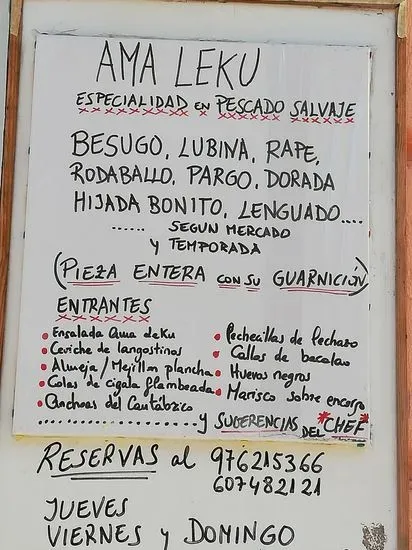 AMA LEKU
ESPECIALIDAD en PESCADO SALVAJE
BESUGO, LUBINA, RAPE,
RODABALLO, PARGO, DORADA
HIJADA BONITO, LENGUADO....
...... SEGUN MERCADO
Y TEMPORADA
(PIEZA ENTERA CON SU GUARNICIÓN)
ENTRANTES
• Ensalada Ama Leku
• Ceviche de langostinos
• Almeja / Mejillon plancha
• Colas de cigala flambeada
• Anchoas del Cantábrico
• Pechecillas de Lechazo
• Callos de bacalao
• Huevos negros
• Marisco sobre encargo
.................... Y SUGERENCIAS DEL *CHEF*
RESERVAS al 976215366
607482121
JUEVES
VIERNES y DOMINGO